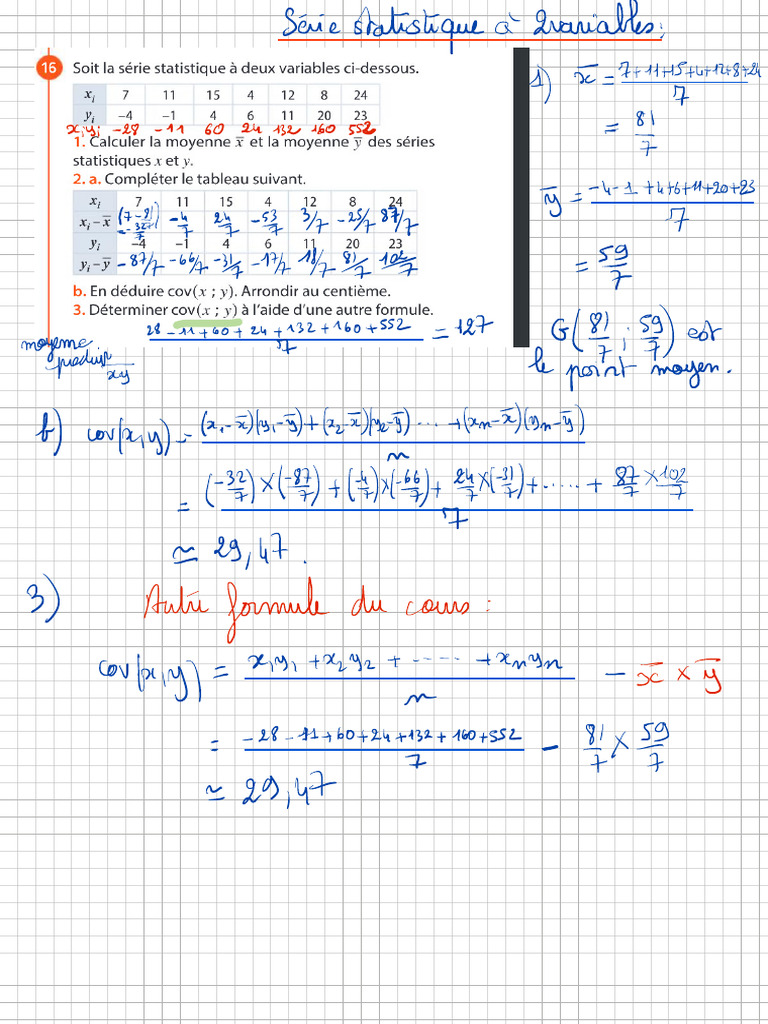 Série statistique à 2 variables :
16 Soit la série statistique à deux variables ci-dessous.
xᵢ 7 11 15 4 12 8 24
yᵢ −4 −1 4 6 11 20 23
xᵢyᵢ −28 −11 60 24 132 160 552
1. Calculer la moyenne x̄ et la moyenne ȳ des séries
statistiques x et y.
2. a. Compléter le tableau suivant.
xᵢ 7 11 15 4 12 8 24
xᵢ − x̄ (7 − 81/7) = −32/7 −4/7 24/7 −53/7 3/7 −25/7 87/7
yᵢ −4 −1 4 6 11 20 23
yᵢ − ȳ −87/7 −66/7 −31/7 −17/7 18/7 81/7 102/7
b. En déduire cov(x ; y). Arrondir au centième.
3. Déterminer cov(x ; y) à l’aide d’une autre formule.
moyenne produit xy
28 − 11 + 60 + 24 + 132 + 160 + 552 / 7 = 127
1) x̄ = 7+11+15+4+12+8+24 / 7
= 81/7
ȳ = −4−1+4+6+11+20+23 / 7
= 59/7
G(81/7 ; 59/7) est
le point moyen.
b) cov(x,y) = (x₁−x̄)(y₁−ȳ)+(x₂−x̄)(y₂−ȳ) ... +(xₙ−x̄)(yₙ−ȳ) / n
= (−32/7)×(−87/7)+(−4/7)×(−66/7)+ 24/7×(−31/7)+.....+ 87/7×102/7 / 7
≃ 29,47.
3) Autre formule du cours :
cov(x,y) = x₁y₁ + x₂y₂ + ..... + xₙyₙ / n − x̄ × ȳ
= −28−11+60+24+132+160+552 / 7 − 81/7 × 59/7
≃ 29,47